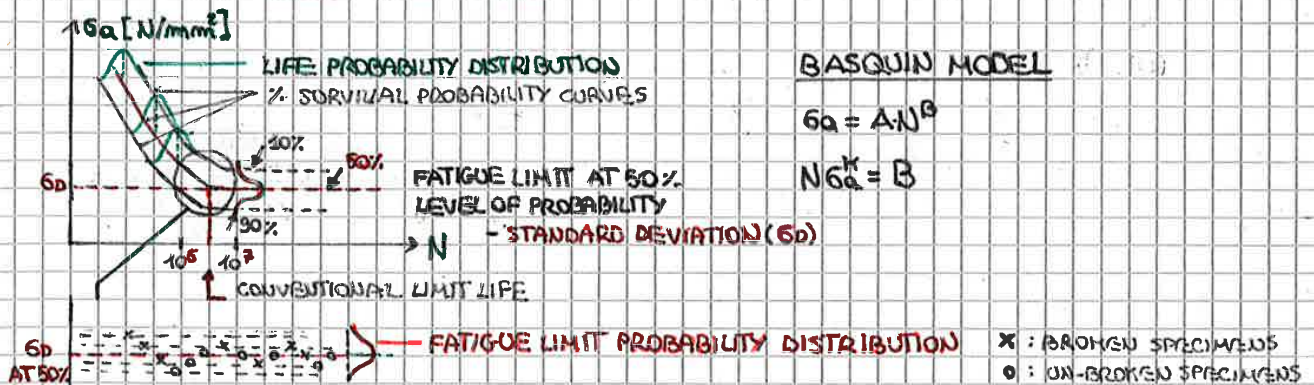 6a [N/mm²]
LIFE PROBABILITY DISTRIBUTION
% SURVIVAL PROBABILITY CURVES
10%
50%
6D
FATIGUE LIMIT AT 50%
LEVEL OF PROBABILITY
- STANDARD DEVIATION (6D)
90%
N
10⁶
10⁷
CONVENTIONAL LIMIT LIFE
BASQUIN MODEL
6a = A·Nᴮ
N6aᴷ = B
6D
AT 50%
FATIGUE LIMIT PROBABILITY DISTRIBUTION
X : BROKEN SPECIMENS
O : UN-BROKEN SPECIMENS